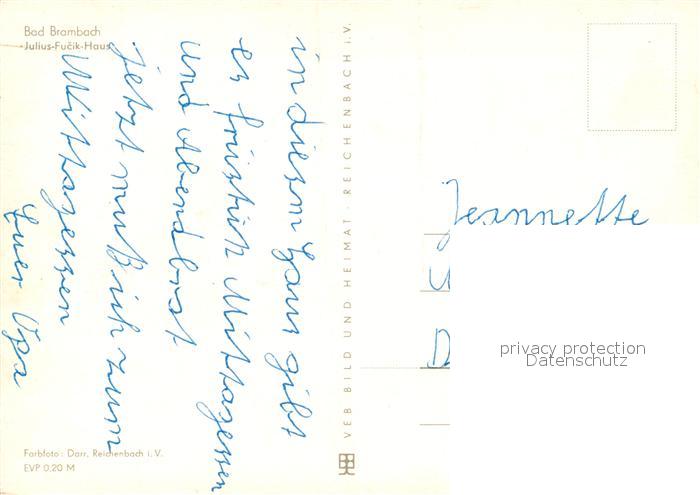 Bad Brambach
-Julius-Fučik-Haus-
in diesem Haus gibt
es früstick Mittagessen
und Abendbrot
jetzt muß ich zum
Mittagessen
Euer Opa
Farbfoto: Darr, Reichenbach i. V.
EVP 0,20 M
VEB BILD UND HEIMAT · REICHENBACH i. V.
Jeannette
privacy protection
Datenschutz